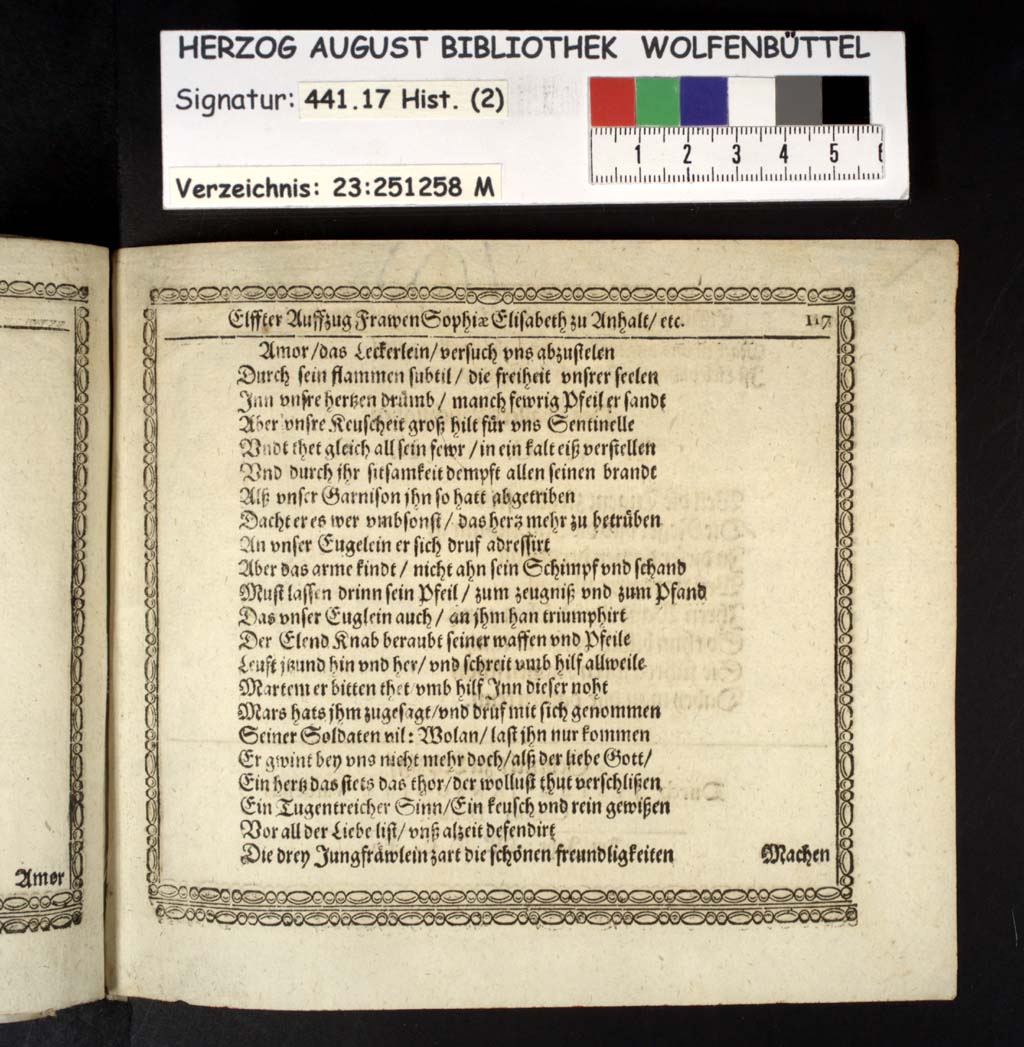 HERZOG AUGUST BIBLIOTHEK WOLFENBÜTTEL
Signatur: 441.17 Hist. (2)
Verzeichnis: 23:251258 M
1 2 3 4 5 6
Elffter Auffzug Frawen Sophiæ Elisabeth zu Anhalt/ etc. 117
Amor/das Leckerlein/versuch vns abzustelen
Durch sein flammen subtil/ die freiheit vnsrer seelen
Inn vnsre hertzen drümb/ manch fewrig Pfeil er sandt
Aber vnsre Keuscheit groß hilt für vns Sentinelle
Vndt thet gleich all sein fewr/in ein kalt eiß verstellen
Vnd durch jhr sitsamkeit dempft allen seinen brandt
Alß vnser Garnison jhn so hatt abgetriben
Dacht er es wer vmbsonst/ das hertz mehr zu betrüben
An vnser Eugelein er sich druf adressirt
Aber das arme kindt/ nicht ahn sein Schimpf vnd schand
Must lassen drinn sein Pfeil/ zum zeugniß vnd zum Pfand
Das vnser Euglein auch/ an jhm han triumphirt
Der Elend Knab beraubt seiner waffen vnd Pfeile
Leuft jtzund hin vnd her/ vnd schreit vmb hilf allweile
Martem er bitten thet vmb hilf Inn dieser noht
Mars hats jhm zugesagt/vnd druf mit sich genommen
Seiner Soldaten vil: Wolan/ last jhn nur kommen
Er gwint bey vns nicht mehr doch/alß der liebe Gott/
Ein hertz das stets das thor/der wollust thut verschlißen
Ein Tugentreicher Sinn/Ein keusch vnd rein gewißen
Vor all der Liebe list/ vnß alzeit defendirt
Die drey Jungfräwlein zart die schönen freundligkeiten
Machen
Amor